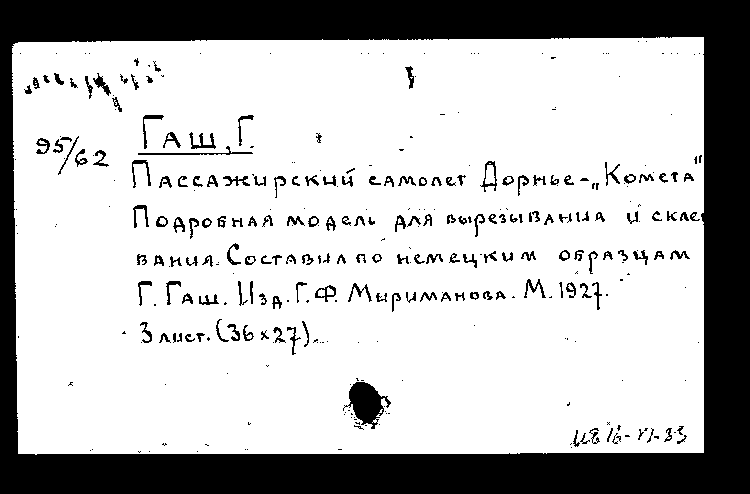 95/62
Гаш, Г.
Пассажирский самолет Дорнье-„Комета"
Подробная модель для вырезывания и склеи
вания. Составил по немецким образцам
Г. Гаш. Изд. Г. Ф. Мириманова. М. 1927.
3 лист. (36 x 27).